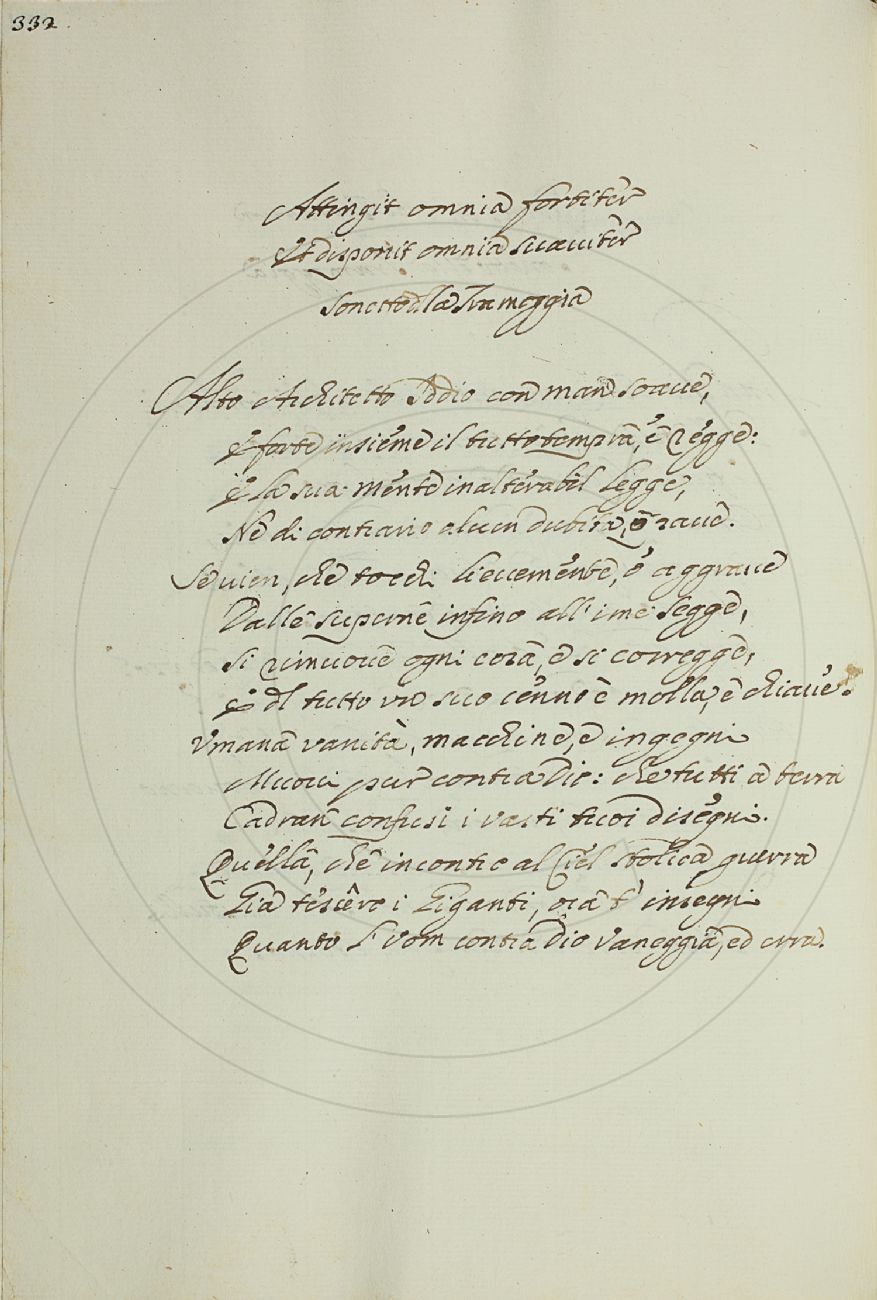 332
Attingit omnia fortiter
Et disponit omnia suauiter
Sonetto d la Tramoggia
Alto Architetto Iddio con man soaue,
E forte insieme il tutto tempra, e regge:
E la sua mente inalterabil legge,
Ne di contrario alcun dubita, o paue.
Se uien, che tocchi lieuemente, e aggraue
Dalle superne infino all' ime segge,
Si rimuoue ogni cosa, e si corregge,
E dl tutto un suo cenno è molla, e chiaue.
Vmana vanità, macchine, e ingegni
Muoui pur contra Dio: che tutti a terra
Cadran confusi i vasti tuoi disegni.
Quella, che incontro al Ciel stolica guerra
Gia tescero i Giganti, ora t' insegni
Quanto l' vom contra Dio vaneggia, ed erra.